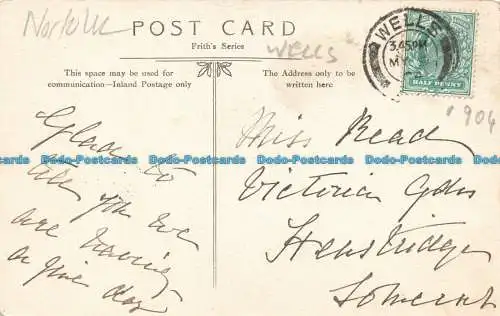 Norfolk
POST CARD
Frith's Series
WELLS
This space may be used for
communication—Island Postage only
The Address only to be
written here
WELLS
3.45PM
HALF PENNY
1904
Glad to
tell you we
are having
a fine day
Miss Read
Victoria Gdns
Henstridge
Somerset
Dodo-Postcards Dodo-Postcards Dodo-Postcards Dodo-Postcards